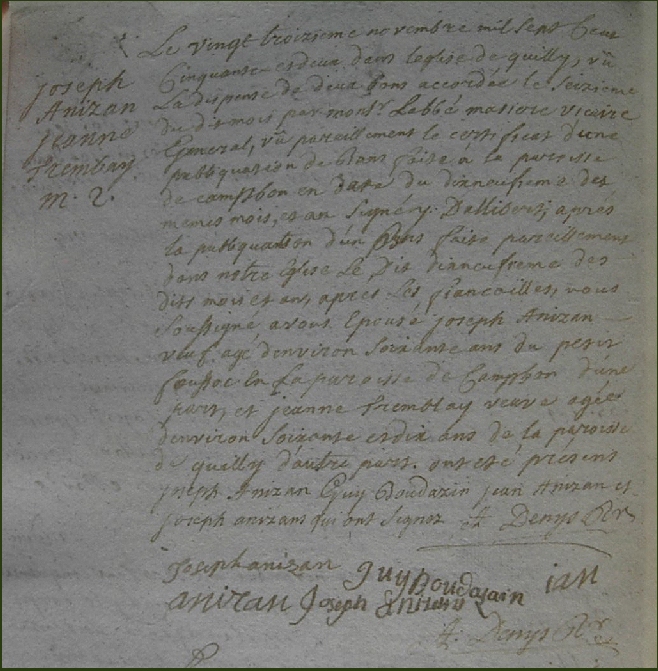 Joseph
Anizan
Jeanne
Tremblay
m. 2.
Le vingt troizieme novembre mil sept cent
Cinquante et deux dans leglise de quilly, vû
La dispense de deux bans accordée le seizieme
du dit mois par monsr. Labbé vicaire
General, vû pareillement le certificat d'une
publiquation de bans faite à la paroisse
de campbon en date du dixneufieme des
memes mois, et an Signé, apres
la publiquation d'un Bans faite pareillement
dans notre Eglise Le Dit dixneufieme des
dits mois et an, apres Les fiancailles, nous
Soussigné avons Epousé joseph Anizan
veuf agé denviron soixante ans du petit
En La paroisse de Campbon d'une
part, et jeanne Tremblay veuve agée
denviron Soixante et dix ans de la paroisse
de quilly d'autre part. ont eté presens
joseph Anizan Guy Doudazin jean Anizan et
joseph anizan qui ont signez Denys Rr
Joseph anizan guy Doudazain ian
anizan Joseph anizan
Denys Rr